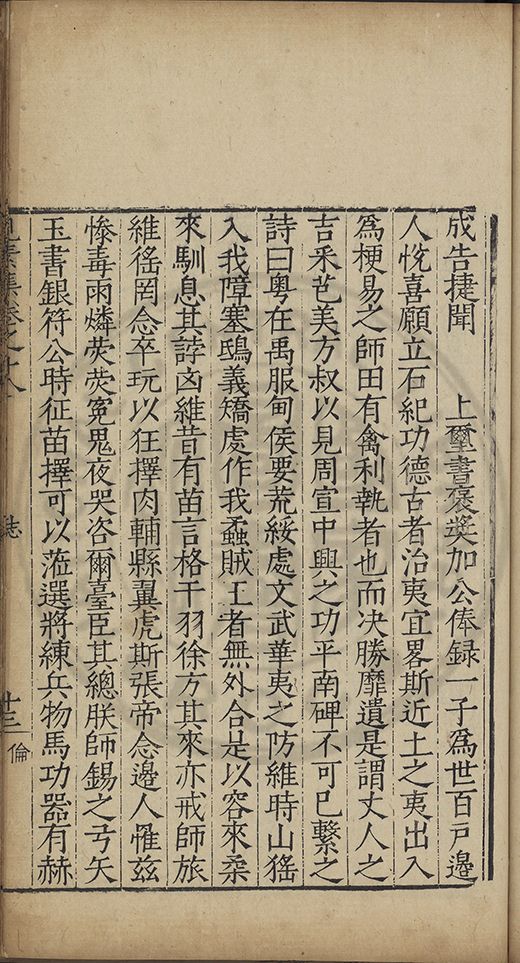 成告捷聞　　上璽書褒奬加公俸録一子爲世百戸邊
人悅喜願立石紀功德古者治夷宜畧斯近土之夷出入
爲梗易之師田有禽利執者也而决勝靡遺是謂丈人之
吉釆芑美方叔以見周宣中興之功平南碑不可已繫之
詩曰粤在禹服甸侯要荒綏處文武華夷之防維時山猺
入我障塞鴟義矯虔作我蟊賊王者無外合是以容來桒
來馴息其誖凶維昔有苗言格干羽徐方其來亦戒師旅
維徭罔念卒玩以狂擇肉輔縣翼虎斯張帝念邊人罹兹
慘毒雨燐荧荧寃鬼夜哭咨爾臺臣其總朕師錫之弓矢
玉書銀符公時征苗擇可以蒞選將練兵物馬功器有赫
集卷之十八
誌
廿三
倫